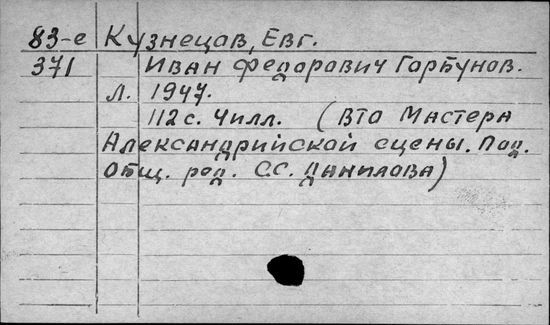 83-е Кузнецов, Евг.
371 Иван Федорович Горбунов.
Л. 1947.
112 с. 4 илл. (ВТО Мастера
Александрийской сцены. Под.
Общ. ред. С.С. Данилова)